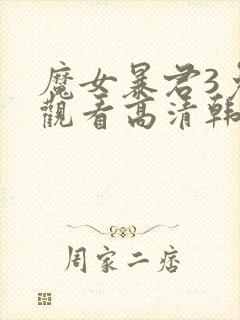 魔女暴君3
觀看高清韓
周家二痞